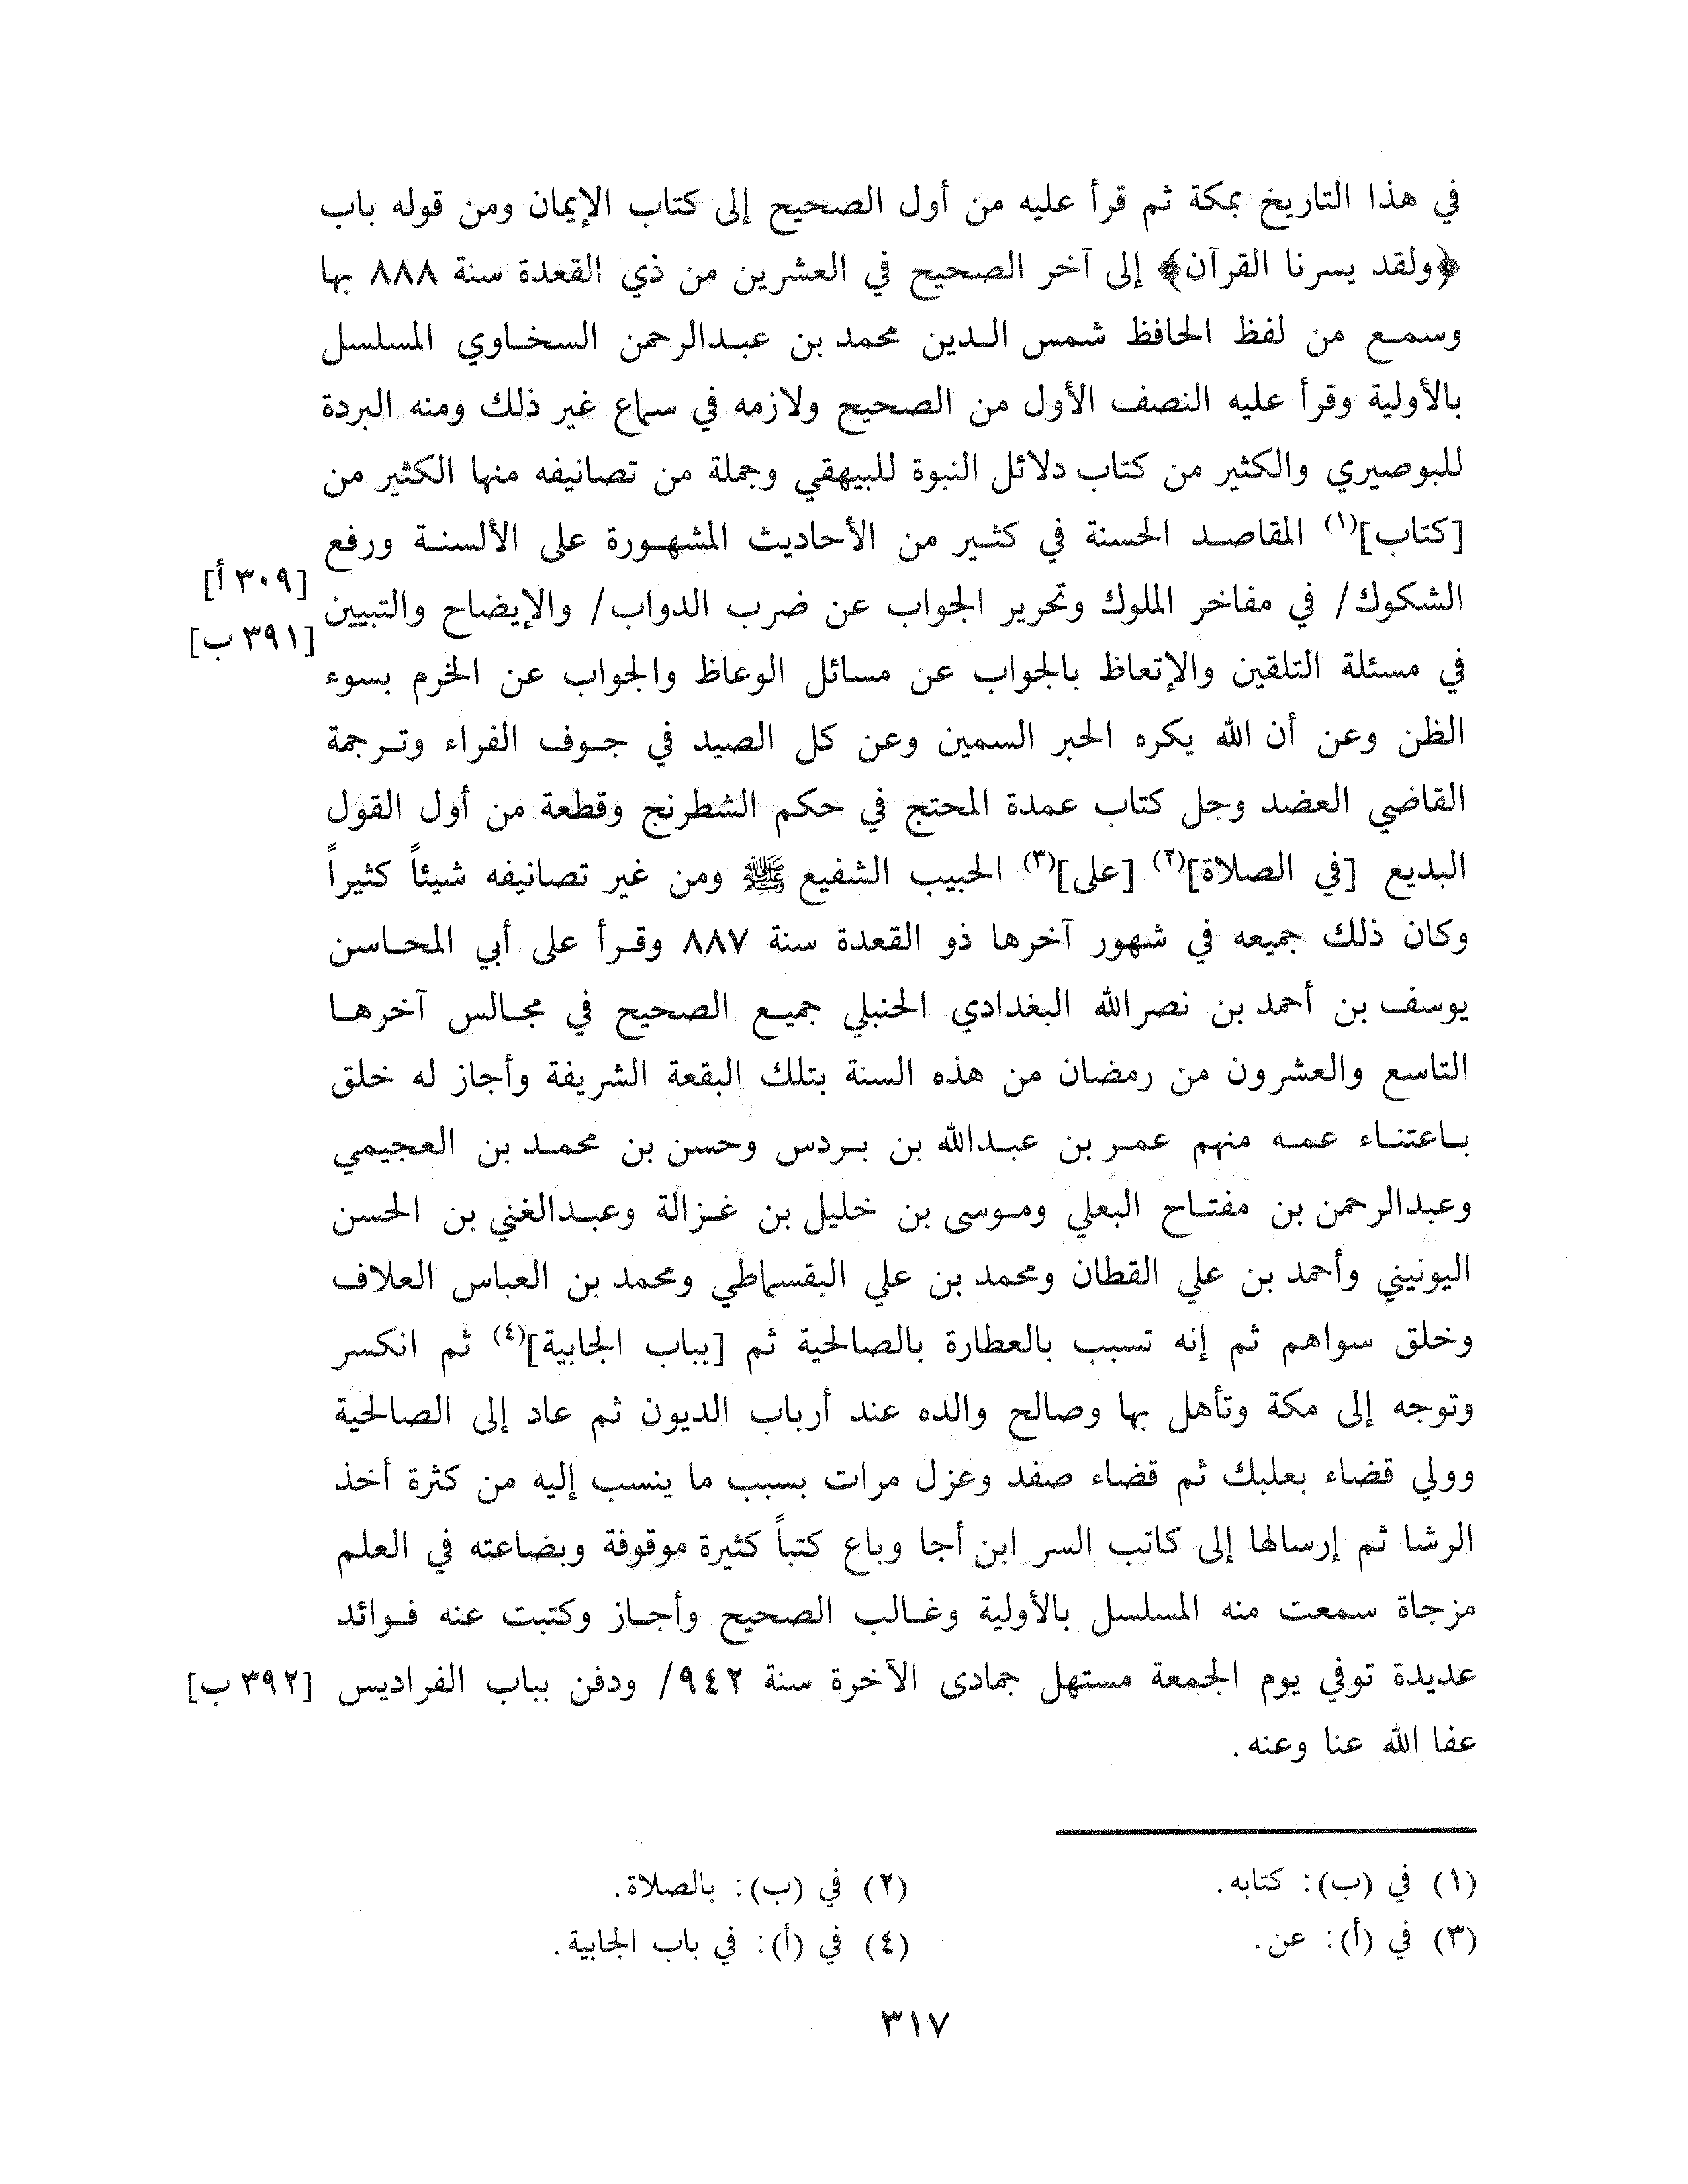 في هذا التاريخ بمكة ثم قرأ عليه من أول الصحيح إلى كتاب الإيمان ومن قوله باب
﴿ولقد يسرنا القرآن﴾ إلى آخر الصحيح في العشرين من ذي القعدة سنة ٨٨٨ بها
وسمع من لفظ الحافظ شمس الدين محمد بن عبدالرحمن السخاوي المسلسل
بالأولية وقرأ عليه النصف الأول من الصحيح ولازمه في سماع غير ذلك ومنه البردة
للبوصيري والكثير من كتاب دلائل النبوة للبيهقي وجملة من تصانيفه منها الكثير من
[كتاب](١) المقاصد الحسنة في كثير من الأحاديث المشهورة على الألسنة ورفع
[٣٠٩ أ]
الشكوك/ في مفاخر الملوك وتحرير الجواب عن ضرب الدواب/ والإيضاح والتبيين
[٣٩١ ب]
في مسئلة التلقين والإتعاظ بالجواب عن مسائل الوعاظ والجواب عن الخرم بسوء
الظن وعن أن الله يكره الحبر السمين وعن كل الصيد في جوف الفراء وترجمة
القاضي العضد وجل كتاب عمدة المحتج في حكم الشطرنج وقطعة من أول القول
البديع [في الصلاة](٢) [على](٣) الحبيب الشفيع ﷺ ومن غير تصانيفه شيئاً كثيراً
وكان ذلك جميعه في شهور آخرها ذو القعدة سنة ٨٨٧ وقرأ على أبي المحاسن
يوسف بن أحمد بن نصرالله البغدادي الحنبلي جميع الصحيح في مجالس آخرها
التاسع والعشرون من رمضان من هذه السنة بتلك البقعة الشريفة وأجاز له خلق
باعتناء عمه منهم عمر بن عبدالله بن بردس وحسن بن محمد بن العجيمي
وعبدالرحمن بن مفتاح البعلي وموسى بن خليل بن غزالة وعبدالغني بن الحسن
اليونيني وأحمد بن علي القطان ومحمد بن علي البقسماطي ومحمد بن العباس العلاف
وخلق سواهم ثم إنه تسبب بالعطارة بالصالحية ثم [بباب الجابية](٤) ثم انكسر
وتوجه إلى مكة وتأهل بها وصالح والده عند أرباب الديون ثم عاد إلى الصالحية
وولي قضاء بعلبك ثم قضاء صفد وعزل مرات بسبب ما ينسب إليه من كثرة أخذ
الرشا ثم إرسالها إلى كاتب السر ابن أجا وباع كتباً كثيرة موقوفة وبضاعته في العلم
مزجاة سمعت منه المسلسل بالأولية وغالب الصحيح وأجاز وكتبت عنه فوائد
عديدة توفي يوم الجمعة مستهل جمادى الآخرة سنة ٩٤٢/ ودفن بباب الفراديس [٣٩٢ ب]
عفا الله عنا وعنه.
(١) في (ب): كتابه. (٢) في (ب): بالصلاة.
(٣) في (أ): عن. (٤) في (أ): في باب الجابية.
٣١٧